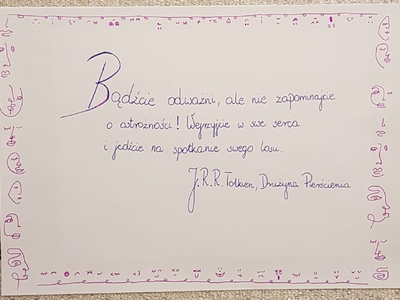 Bądźcie odważni, ale nie zapominajcie
o ostrożności! Wejrzyjcie w swe serca
i jedźcie na spotkanie swego losu.
J.R.R. Tolkien, Drużyna Pierścienia